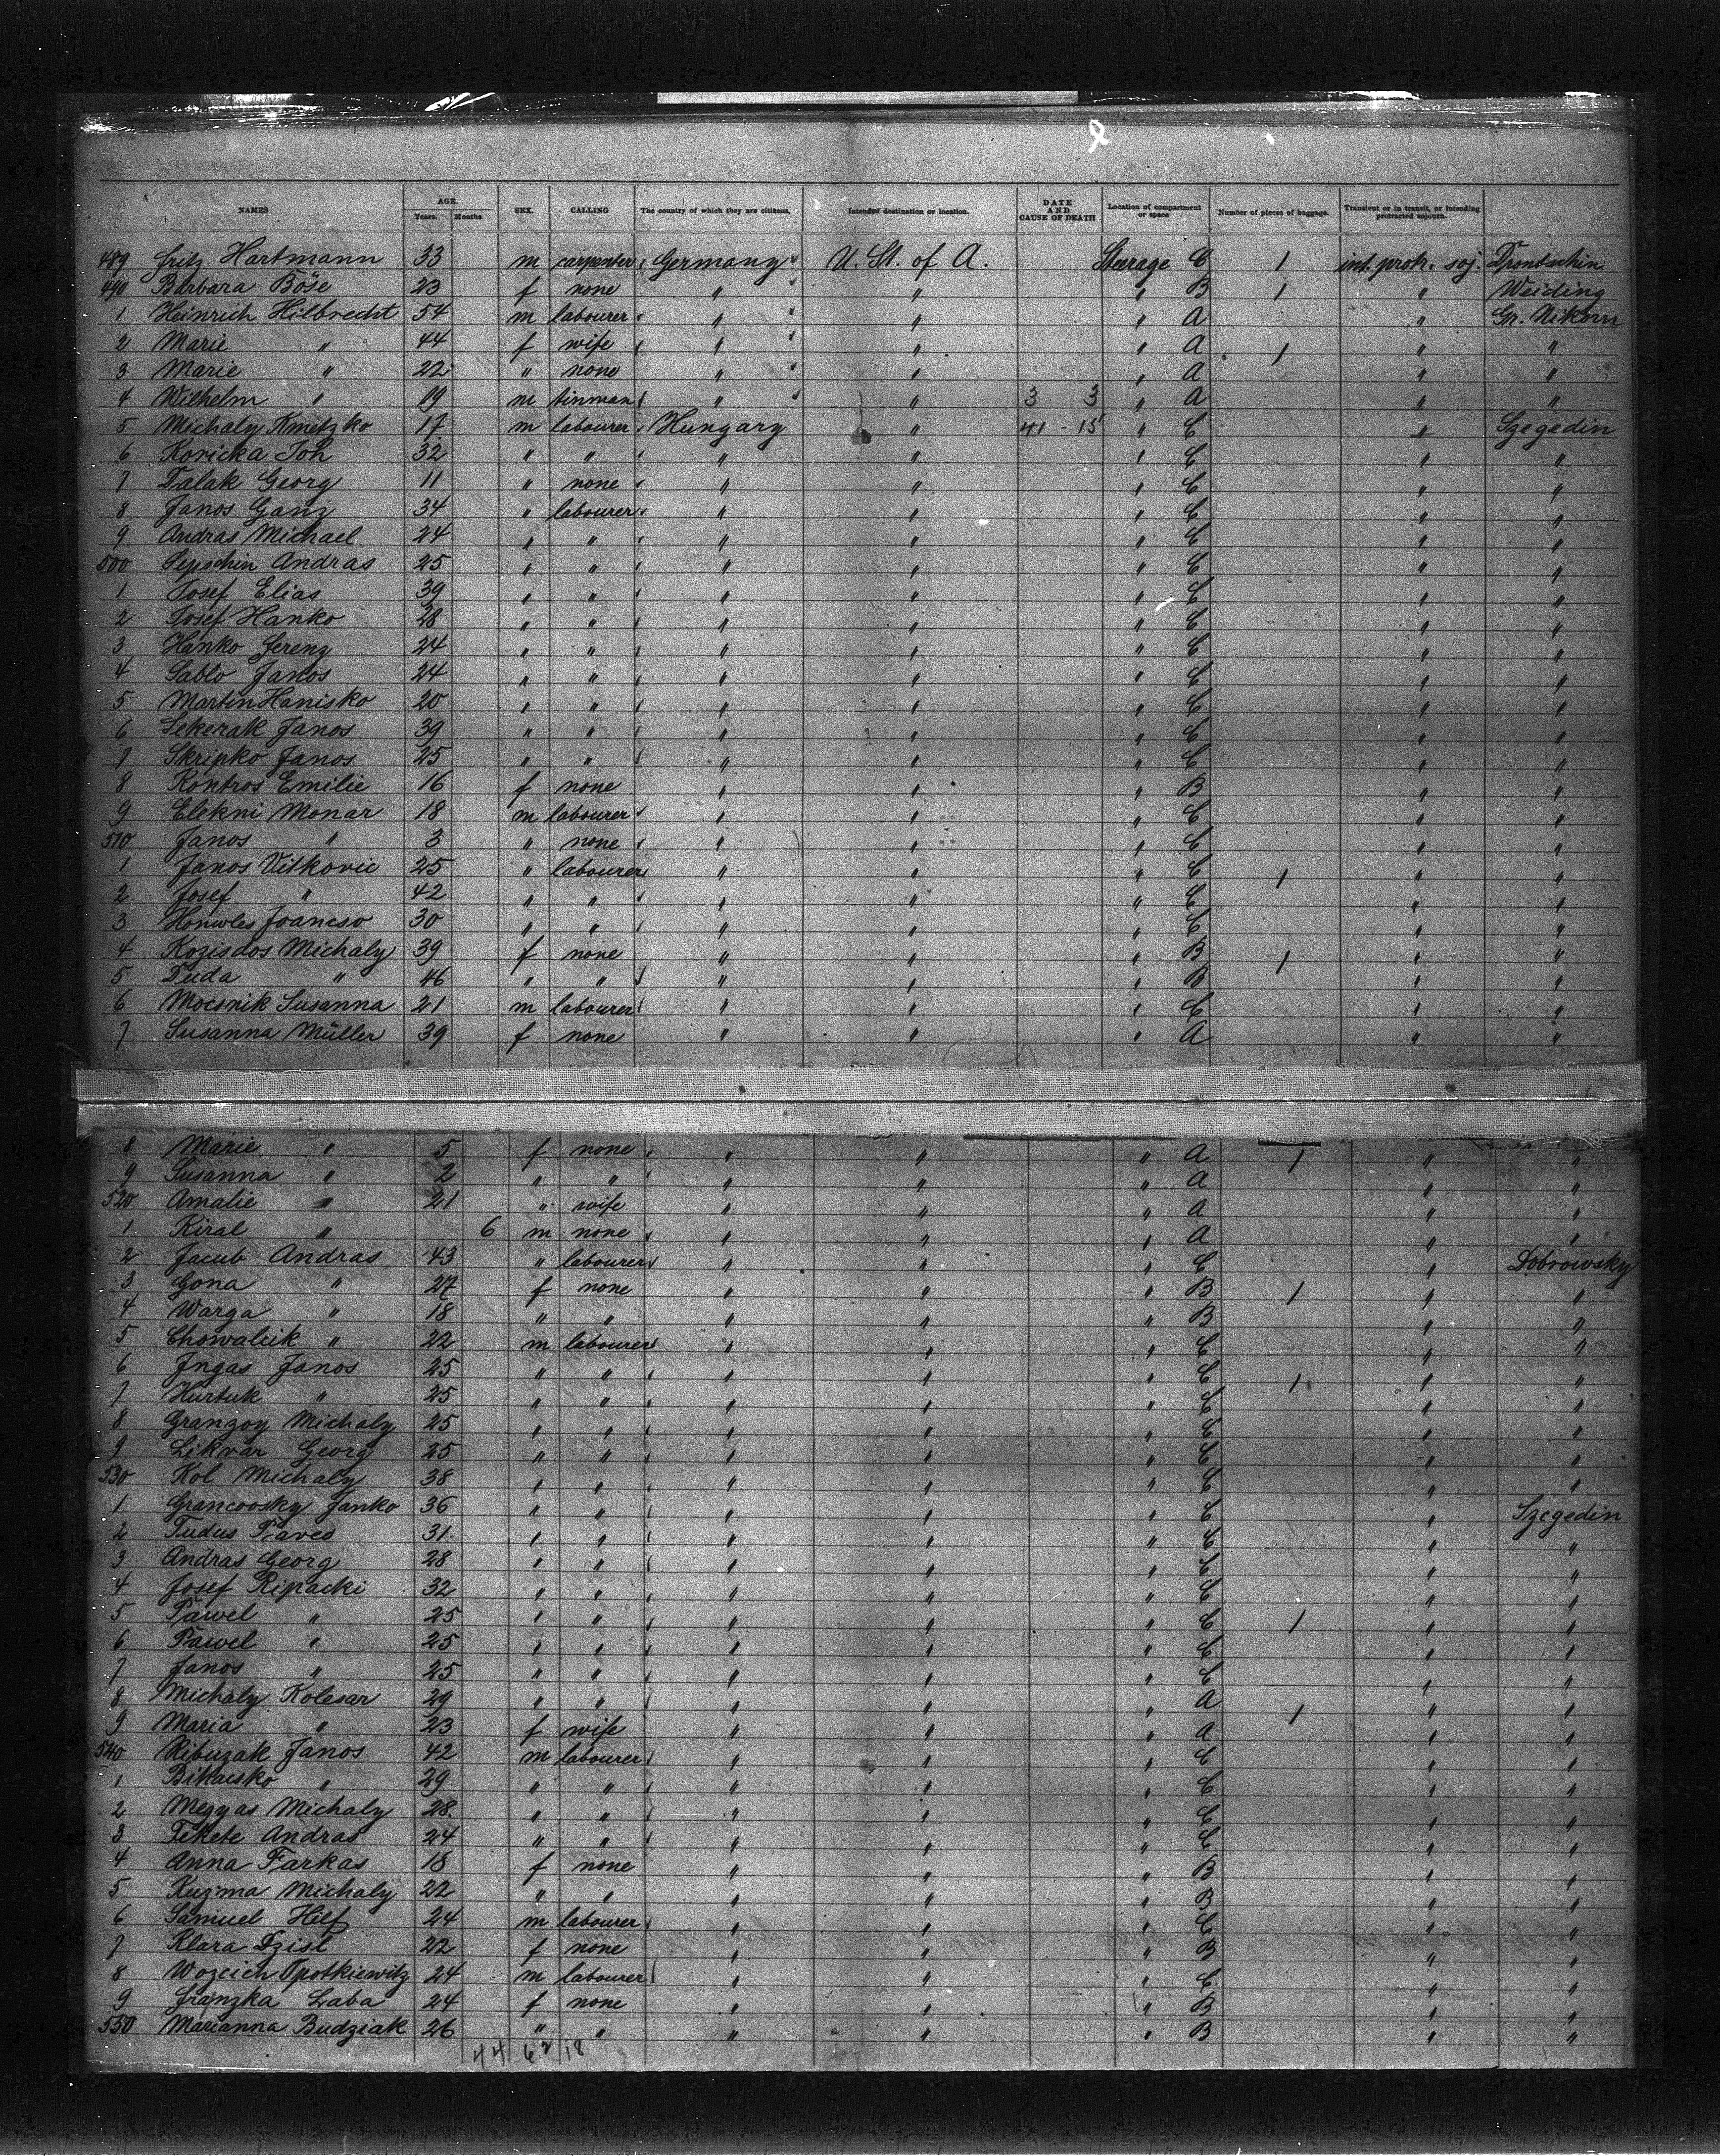 NAMES AGE. Years. Months SEX. CALLING The country of which they are citizens. Intended destination or location. DATE AND CAUSE OF DEATH Location of compartment or space Number of pieces of baggage. Transient or in transit, or intending protracted sojourn.
489 Fritz Hartmann 33 m carpenter Germany U. St. of A. Stearage C 1 int. protr. soj.
490 Barbara Böse 23 f none " " " B 1 " Weiding
1 Heinrich Hilbrecht 54 m labourer " " " A " Gr. Nikorn
2 Marie " 44 f wife " " " A 1 " "
3 Marie " 22 " none " " " A " "
4 Wilhelm " 19 m tinman " " 3 3 " A " "
5 Michaly Kmetzko 17 m labourer Hungary " 41 - 15 " C " Szegedin
6 Koricka Joh 32 " " " " " C " "
7 Talak Georg 11 " none " " " C " "
8 Janos Ganz 34 " labourer " " " C " "
9 Andras Michael 24 " " " " " C " "
500 Sepschin Andras 25 " " " " " C " "
1 Josef Elias 39 " " " " " C " "
2 Josef Hanko 28 " " " " " C " "
3 Hanko Ferenz 24 " " " " " C " "
4 Sablo Janos 24 " " " " " C " "
5 Martin Hanisko 20 " " " " " C " "
6 Sekerak Janos 39 " " " " " C " "
7 Skripko Janos 25 " " " " " C " "
8 Kontros Emilie 16 f none " " " B " "
9 Elekni Monar 18 m labourer " " " C " "
510 Janos " 3 " none " " " C " "
1 Janos Vitkovic 25 " labourer " " " C 1 " "
2 Josef " 42 " " " " " C " "
3 Joancso 30 " " " " " C " "
4 Kozisdos Michaly 39 f none " " " B 1 " "
5 Duda " 46 " " " " " B " "
6 Mocsnik Susanna 21 m labourer " " " C " "
7 Susanna Müller 39 f none " " " A " "
8 Marie " 5 f none " " " A 1 " "
9 Susanna " 2 " " " " " A " "
520 Amalie " 21 " wife " " " A " "
1 Kiral " 6 m none " " " A " "
2 Jacub Andras 43 " labourer " " " C " Dobrowsky
3 Gona " 27 f none " " " B 1 " "
4 Warga " 18 " " " " " B " "
5 Chowalcik " 22 m labourer " " " C " "
6 Ingas Janos 25 " " " " " C 1 " "
7 Hurtuk " 25 " " " " " C " "
8 Granzoy Michaly 25 " " " " " C " "
9 Likvar Georg 25 " " " " " C " "
530 Kol Michaly 38 " " " " " C " "
1 Grancovsky Janko 36 " " " " " C " Szegedin
2 Tudus 31 " " " " " C " "
3 Andras Georg 28 " " " " " C " "
4 Josef Ripacki 32 " " " " " C " "
5 Pawel " 25 " " " " " C 1 " "
6 Pawel " 25 " " " " " C " "
7 Janos " 25 " " " " " C " "
8 Michaly Kolesar 29 " " " " " A 1 " "
9 Maria " 23 f wife " " " A " "
540 Ribuzak Janos 42 m labourer " " " C " "
1 Bikacsko " 29 " " " " " C " "
2 Megyas Michaly 28 " " " " " C " "
3 Fekete Andras 24 " " " " " C " "
4 Anna Farkas 18 f none " " " B " "
5 Kuzma Michaly 22 " " " " " B " "
6 Samuel Hilf 24 m labourer " " " C " "
7 Klara Dzisl 22 f none " " " B " "
8 Wozcich Opotkiewitz 24 m labourer " " " C " "
9 Franzka Laba 24 f none " " " B " "
550 Marianna Budziak 26 " " " " " B " "
44 62 18